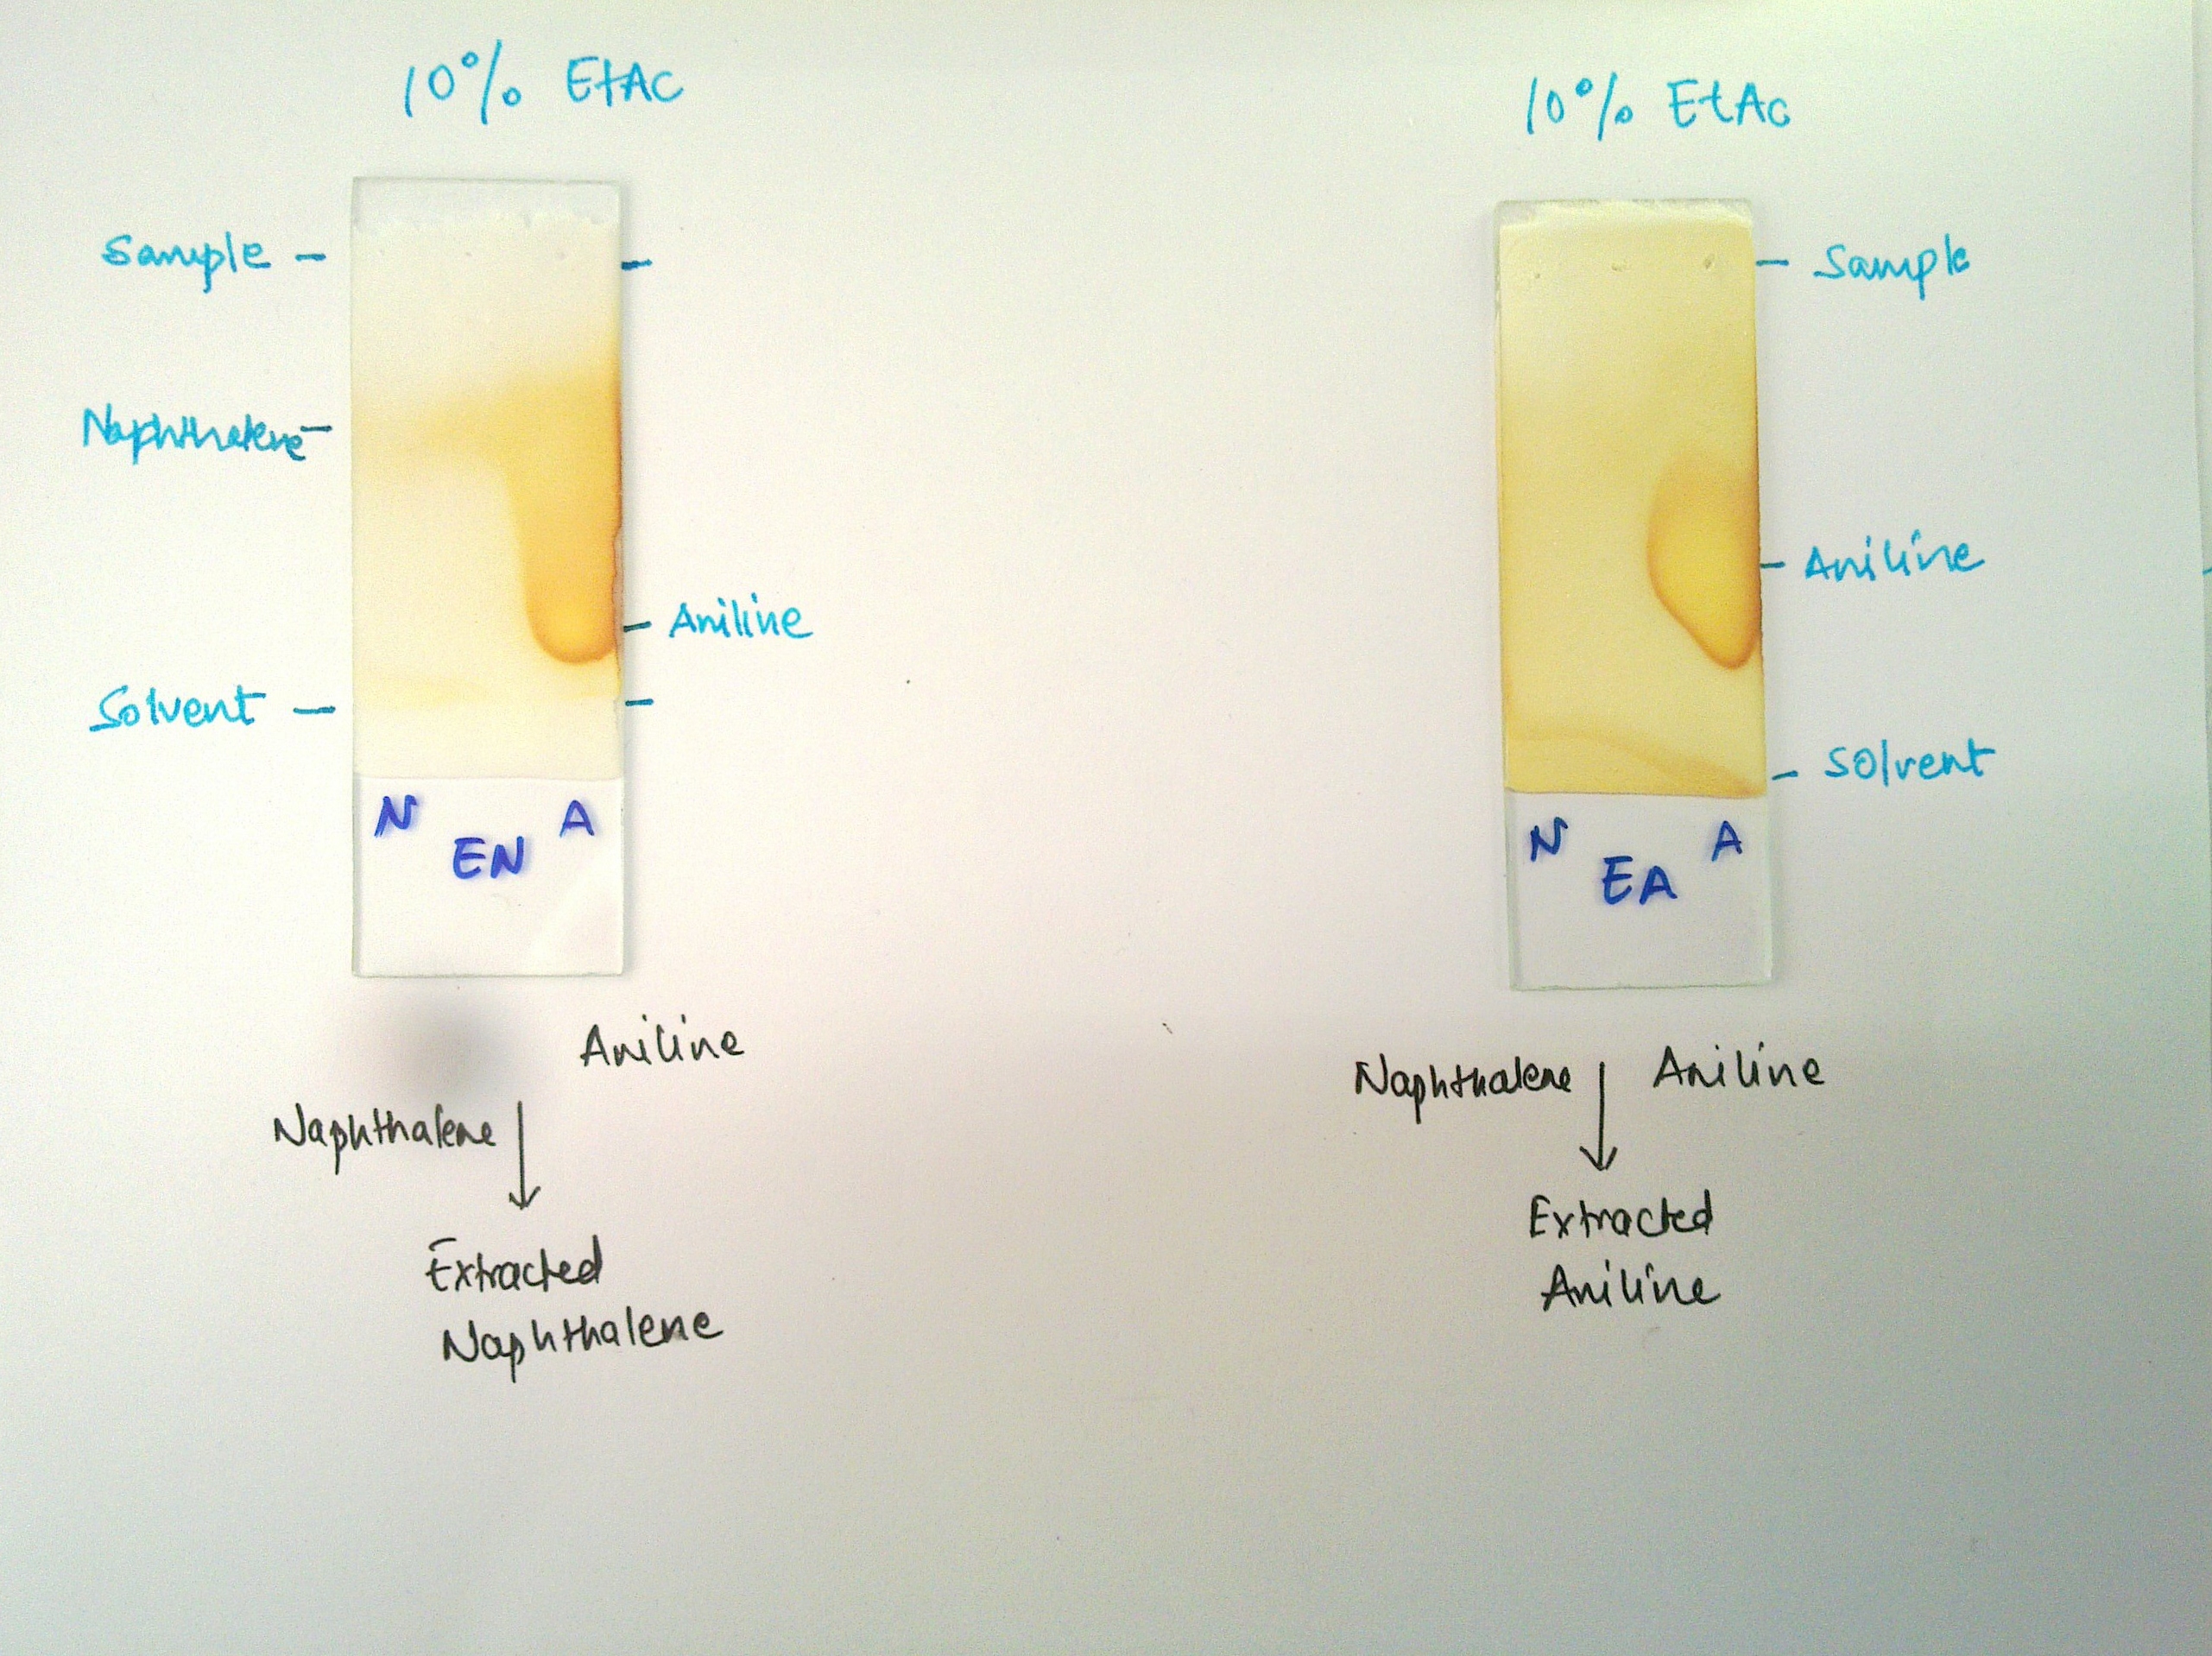 10% EtAc
Sample
Naphthalene
Aniline
Solvent
N EN A
Aniline
Naphthalene
Extracted
Naphthalene
10% EtAc
Sample
Aniline
Solvent
N EA A
Naphthalene Aniline
Extracted
Aniline